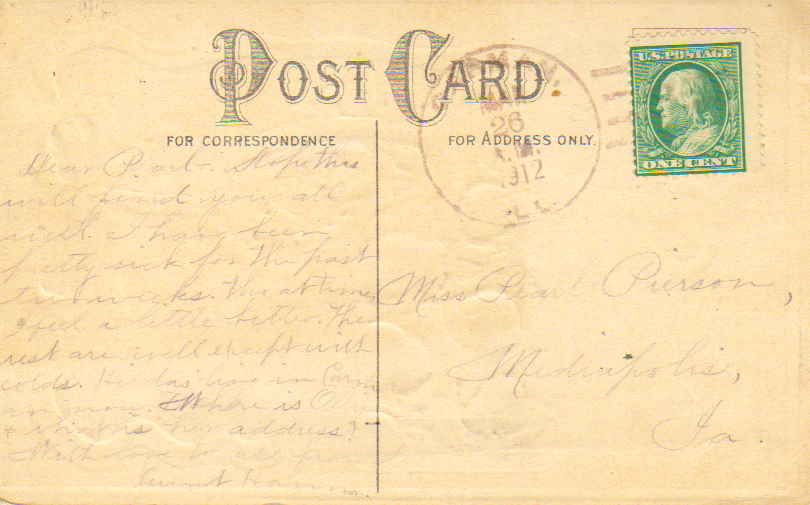 POST CARD
FOR CORRESPONDENCE
FOR ADDRESS ONLY.
U.S. POSTAGE
ONE CENT
26
A.M.
1912
ILL.
Dear Pearl- Hope this
will find you all
well. I have been
pretty sick for the past
two weeks. at times
I feel a little better. The
rest are well except with
colds. live in
any more. Where is
& what is her address?
With love to all from
Aunt
Miss Pearl Pierson,
Mediapolis,
Ia